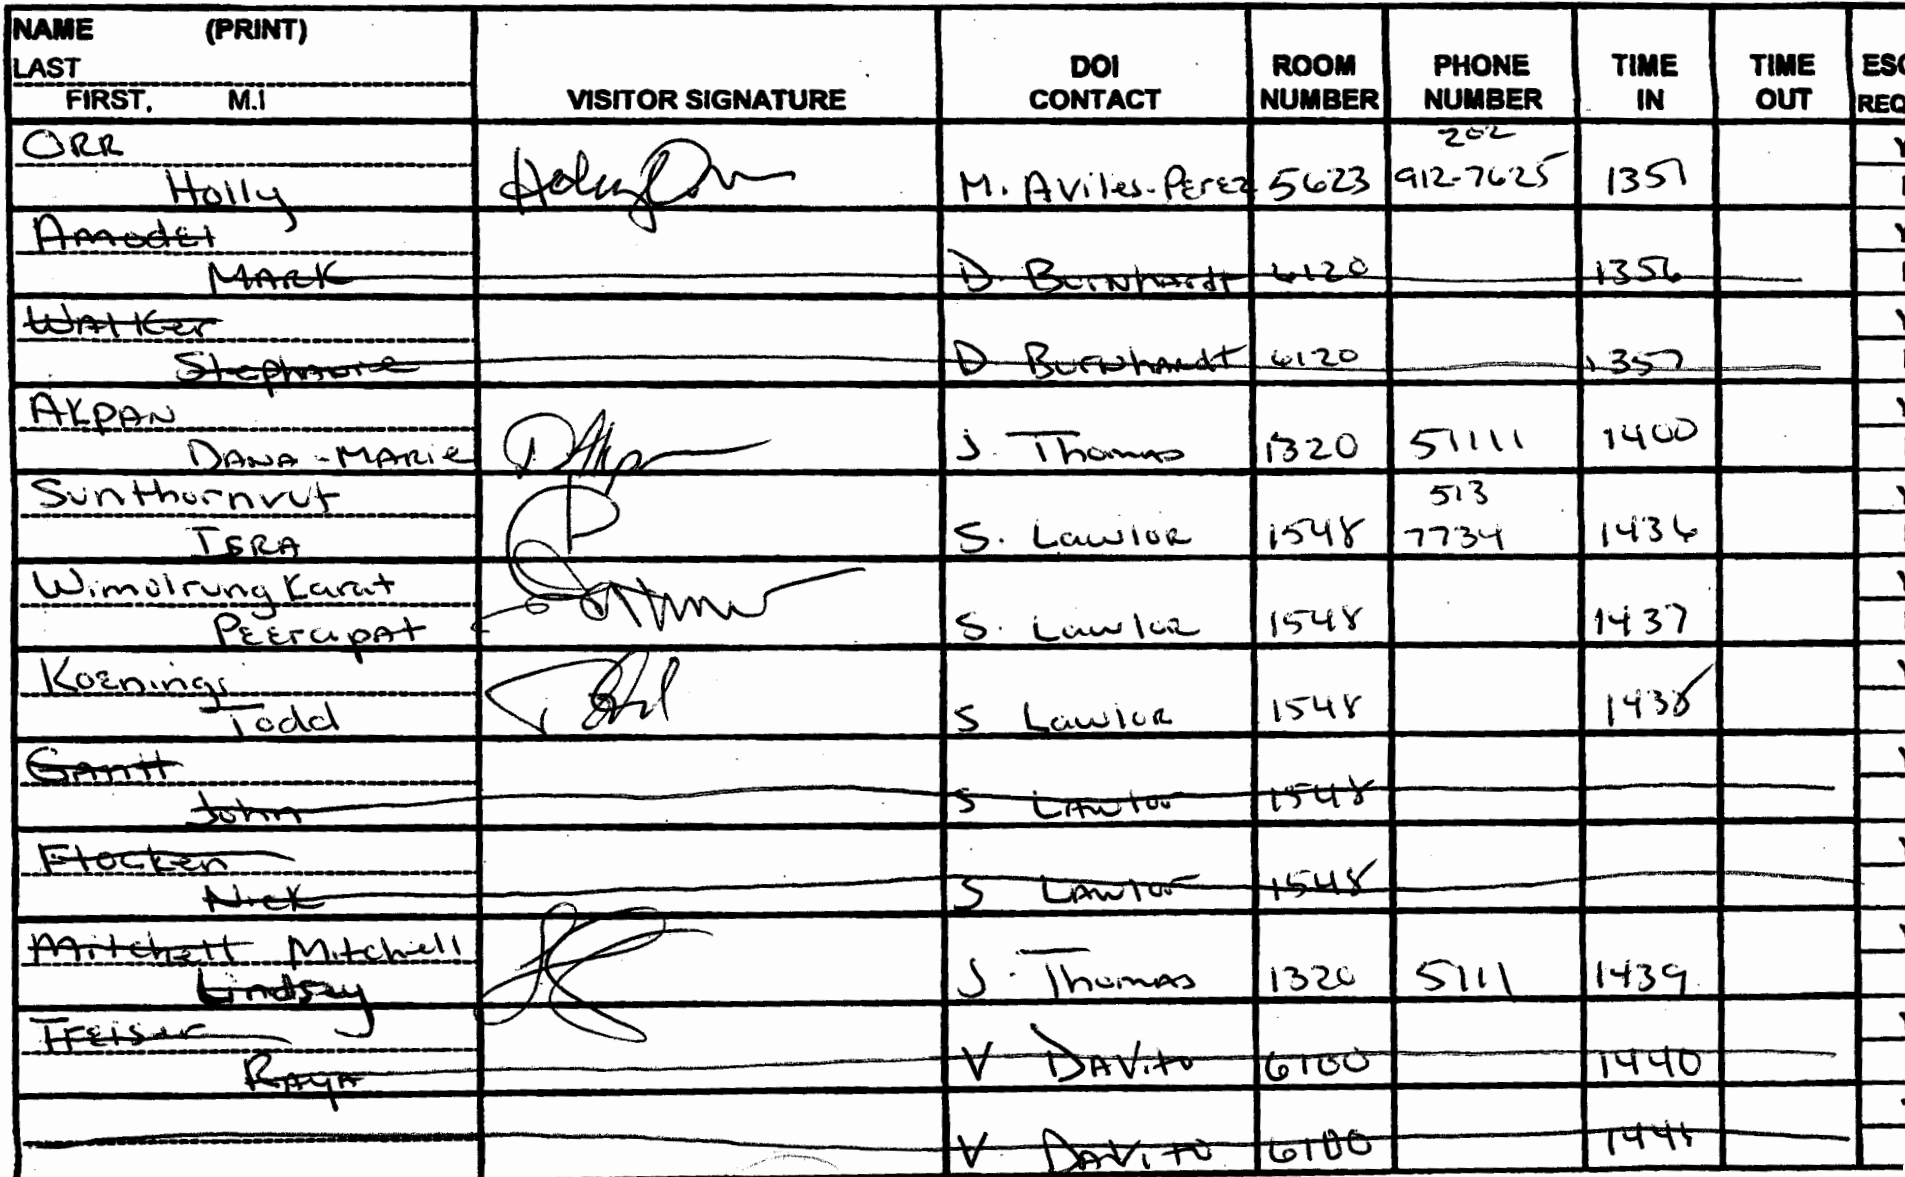 NAME (PRINT)
LAST
FIRST, M.I
VISITOR SIGNATURE
DOI CONTACT
ROOM NUMBER
PHONE NUMBER
TIME IN
TIME OUT
ORR
Holly M. Aviles-Perez 5623 202 912-7625 1351
Amodei
MARK D. Bernhardt 6120 1356
Walker
Stephanie D Bernhardt 6120 1357
AKPAN
DANA-MARIE J. Thomas 1320 51111 1400
Sunthornvut
TERA S. Lawlor 1548 513 7734 1436
Wimolrung Karat
PEErapat S. Lawlor 1548 1437
Koenings
Todd S Lawlor 1548 1438
Gantt
John S Lawlor 1548
Flocken
Nick S Lawlor 1548
Mitchell Mitchell
Lindsay J. Thomas 1320 5111 1439
Raya V DAVito 6100 1440
V DAVito 6100